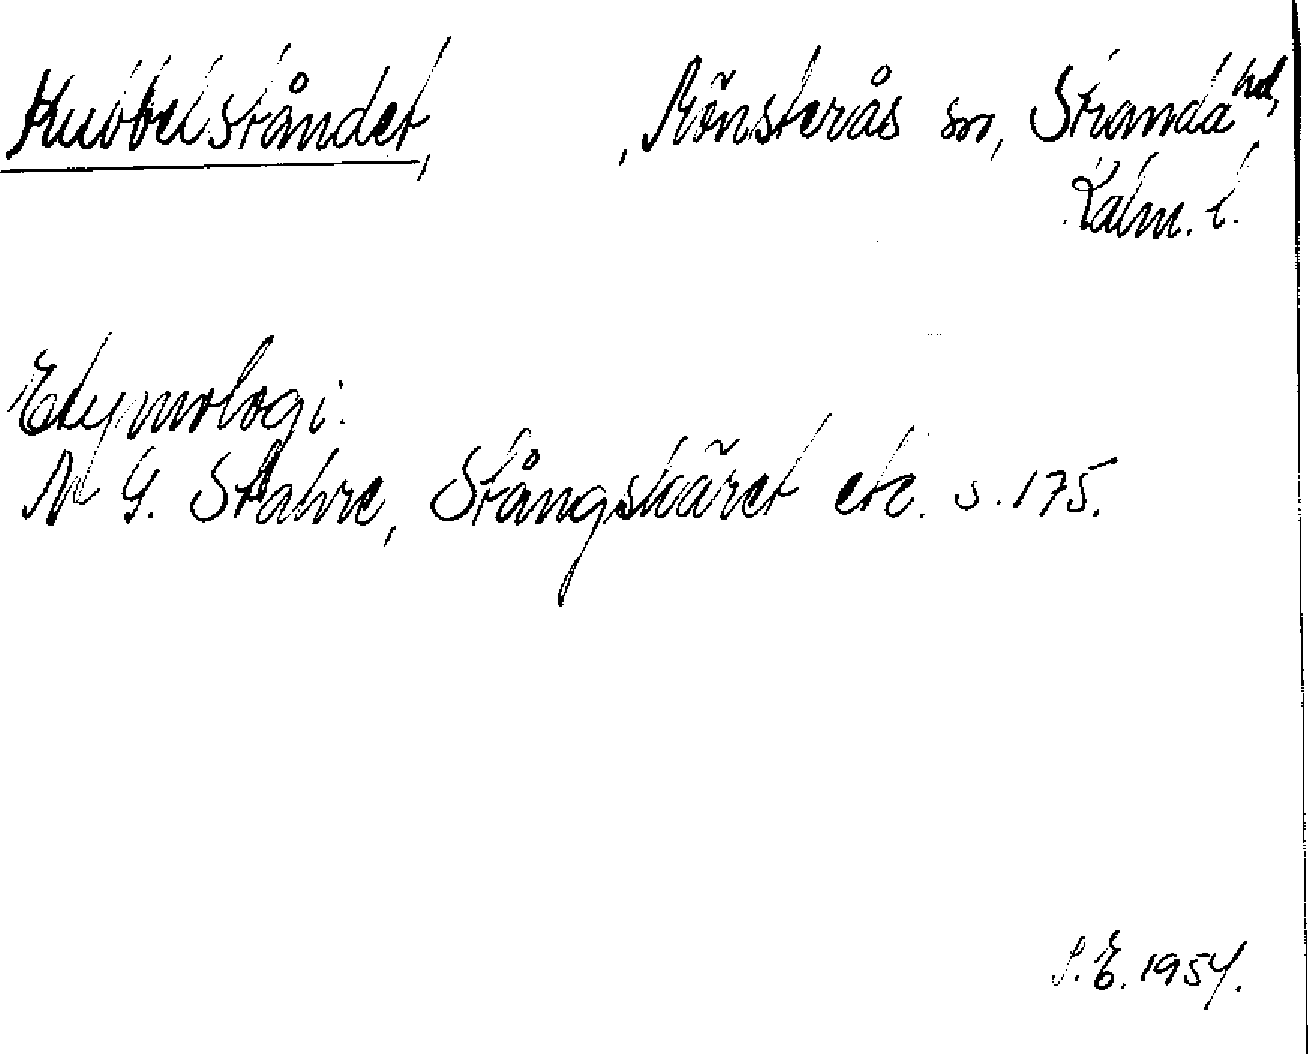 Kubbelståndet, , Mönsterås sn, Stranda hd,
Kalm. l.
Etymologi:
N G. Stahre, Stångskäret etc. s. 175.
S. E. 1954.